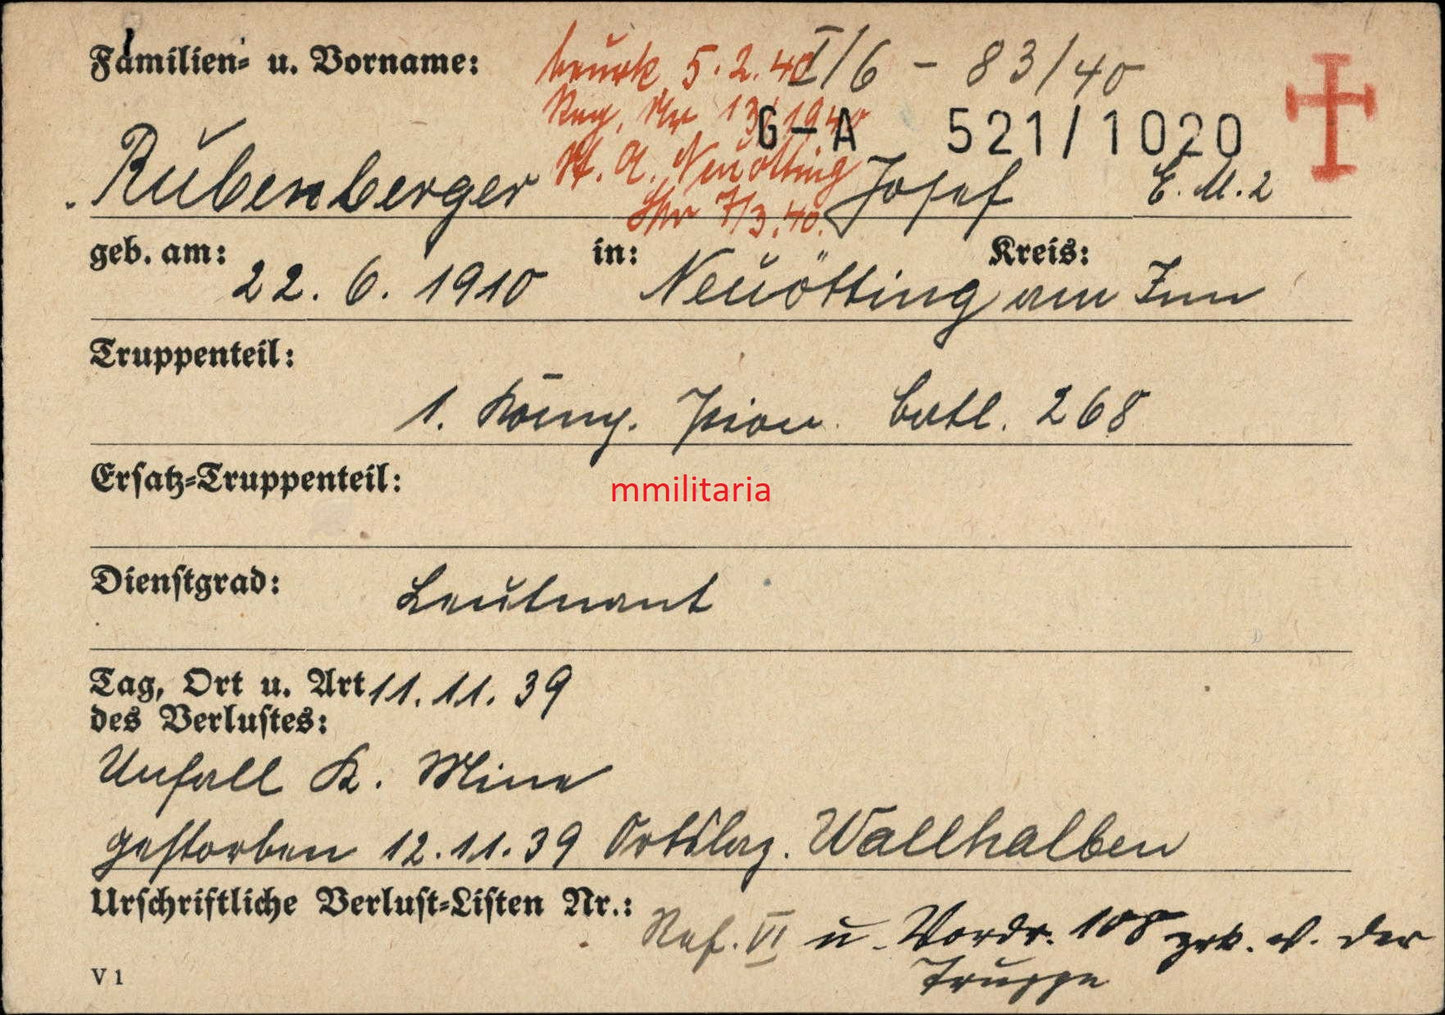 Familien- u. Vorname:
beurk 5.2.40 I/6 - 83/40
Reg. Nr 13/1940
G-A 521/1020
St. A. Neuötting
Rubenberger Josef E.M.2
7/3.40.
geb. am: 22.6.1910 in: Neuötting am Inn Kreis:
Truppenteil:
1. Komp. Pion. Batl. 268
Ersatz-Truppenteil:
mmilitaria
Dienstgrad: Leutnant
Tag, Ort u. Art 11.11.39
des Verlustes:
Unfall K. Mine
gestorben 12.11.39 Ortslaz. Wallhalben
Urschriftliche Verlust-Listen Nr.:
Ref. VI u. Vordr. 108 zrk. v. der
Truppe
V 1